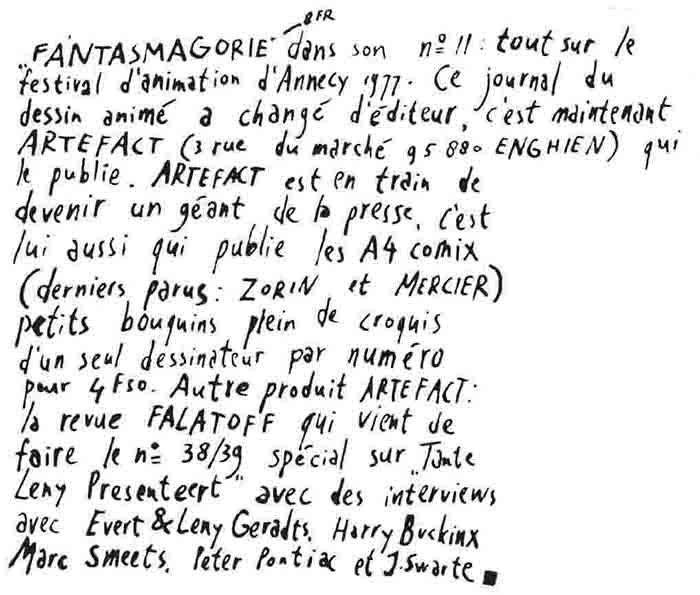 8 FR
„FANTASMAGORIE" dans son nº 11 : tout sur le
festival d'animation d'Annecy 1977. Ce journal du
dessin animé a changé d'éditeur, c'est maintenant
ARTEFACT (3 rue du marché 95 880 ENGHIEN) qui
le publie. ARTEFACT est en train de
devenir un géant de la presse, c'est
lui aussi qui publie les A4 comix
(derniers parus : ZORIN et MERCIER)
petits bouquins plein de croquis
d'un seul dessinateur par numéro
pour 4F50. Autre produit ARTEFACT :
la revue FALATOFF qui vient de
faire le nº 38/39 spécial sur „Tante
Leny Presenteert" avec des interviews
avec Evert & Leny Geradts, Harry Buckinx
Marc Smeets, Peter Pontiac et J. Swarte ■